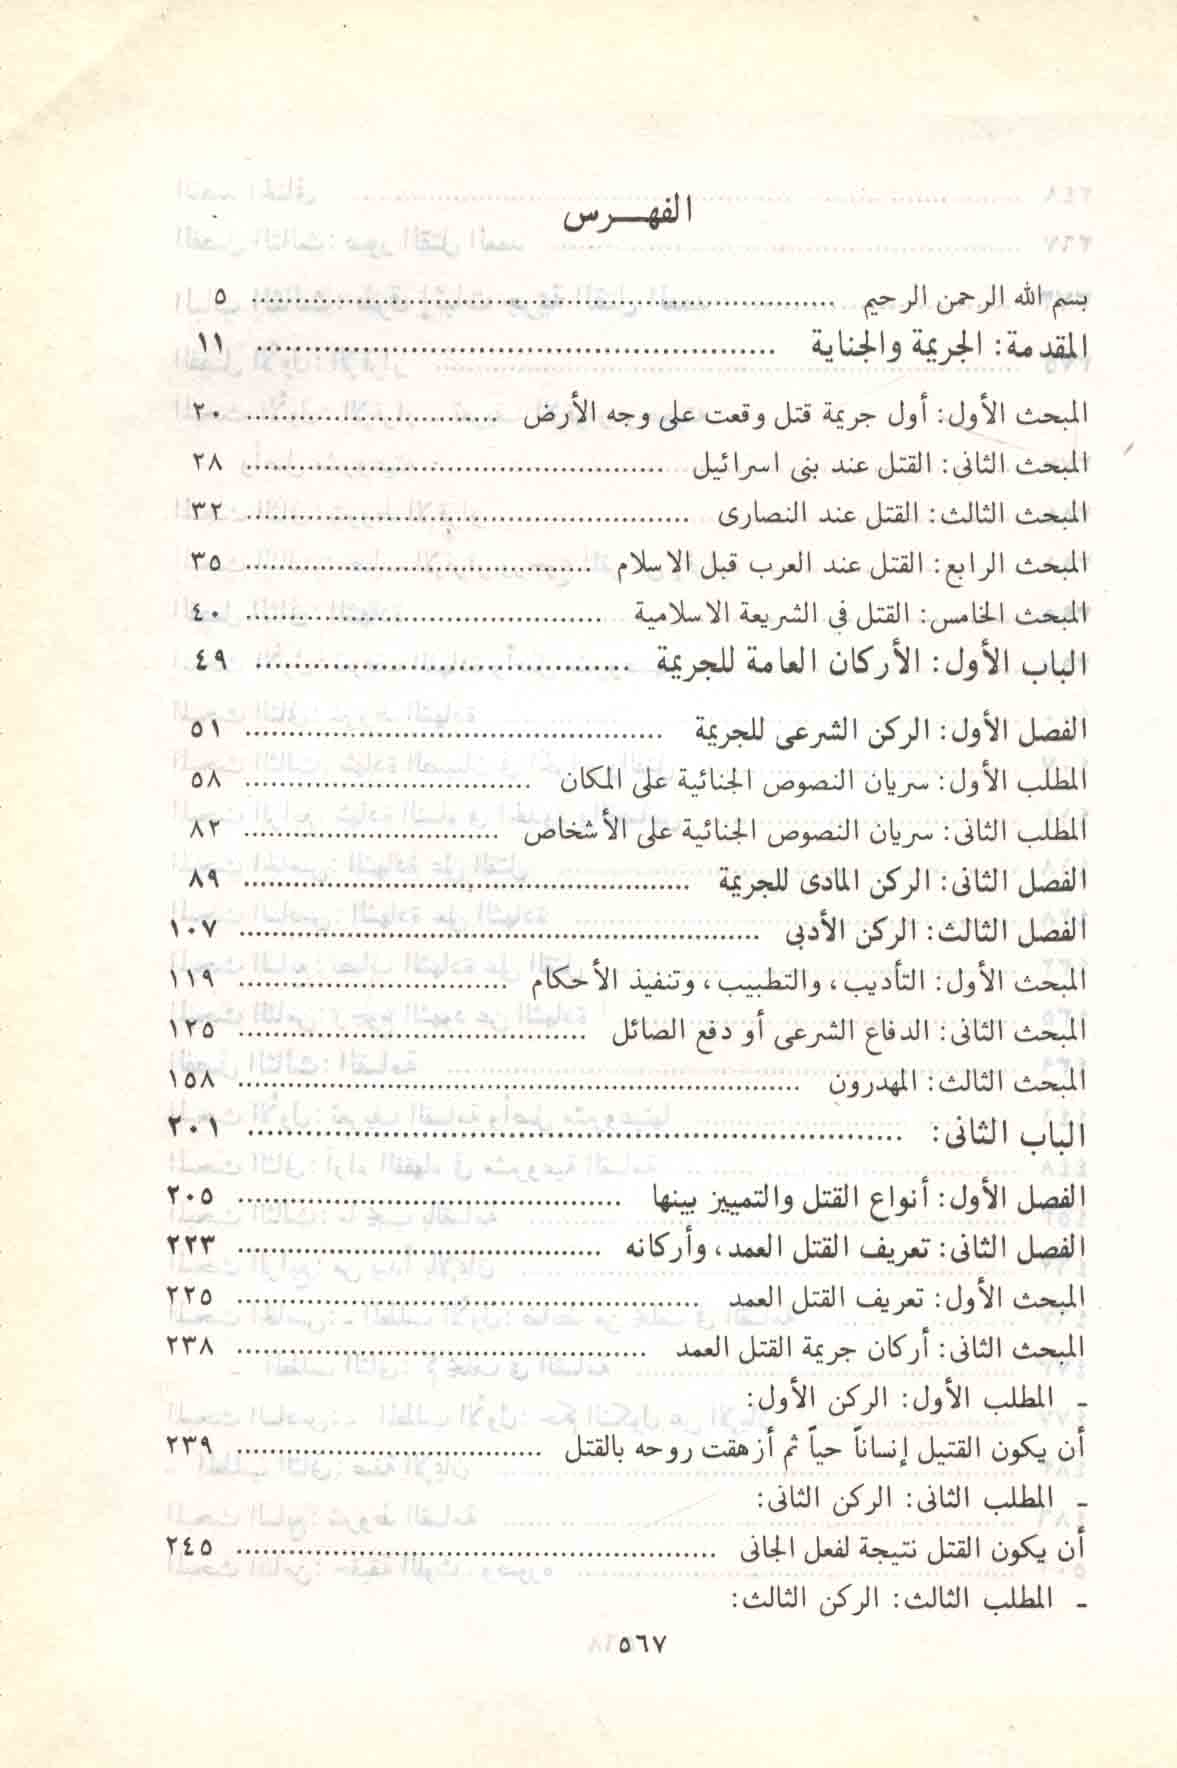 الفهرس
بسم الله الرحمن الرحيم ........ ٥
المقدمة: الجريمة والجناية ........ ١١
المبحث الأول: أول جريمة قتل وقعت على وجه الأرض ........ ٢٠
المبحث الثانى: القتل عند بنى اسرائيل ........ ٢٨
المبحث الثالث: القتل عند النصارى ........ ٣٢
المبحث الرابع: القتل عند العرب قبل الاسلام ........ ٣٥
المبحث الخامس: القتل في الشريعة الاسلامية ........ ٤٠
الباب الأول: الأركان العامة للجريمة ........ ٤٩
الفصل الأول: الركن الشرعى للجريمة ........ ٥١
المطلب الأول: سريان النصوص الجنائية على المكان ........ ٥٨
المطلب الثانى: سريان النصوص الجنائية على الأشخاص ........ ٨٢
الفصل الثانى: الركن المادى للجريمة ........ ٨٩
الفصل الثالث: الركن الأدبى ........ ١٠٧
المبحث الأول: التأديب، والتطبيب، وتنفيذ الأحكام ........ ١١٩
المبحث الثانى: الدفاع الشرعى أو دفع الصائل ........ ١٢٥
المبحث الثالث: المهدرون ........ ١٥٨
الباب الثانى: ........ ٢٠١
الفصل الأول: أنواع القتل والتمييز بينها ........ ٢٠٥
الفصل الثانى: تعريف القتل العمد، وأركانه ........ ٢٢٣
المبحث الأول: تعريف القتل العمد ........ ٢٢٥
المبحث الثانى: أركان جريمة القتل العمد ........ ٢٣٨
ـ المطلب الأول: الركن الأول:
أن يكون القتيل إنساناً حياً ثم أزهقت روحه بالقتل ........ ٢٣٩
ـ المطلب الثانى: الركن الثانى:
أن يكون القتل نتيجة لفعل الجانى ........ ٢٤٥
ـ المطلب الثالث: الركن الثالث:
٥٦٧